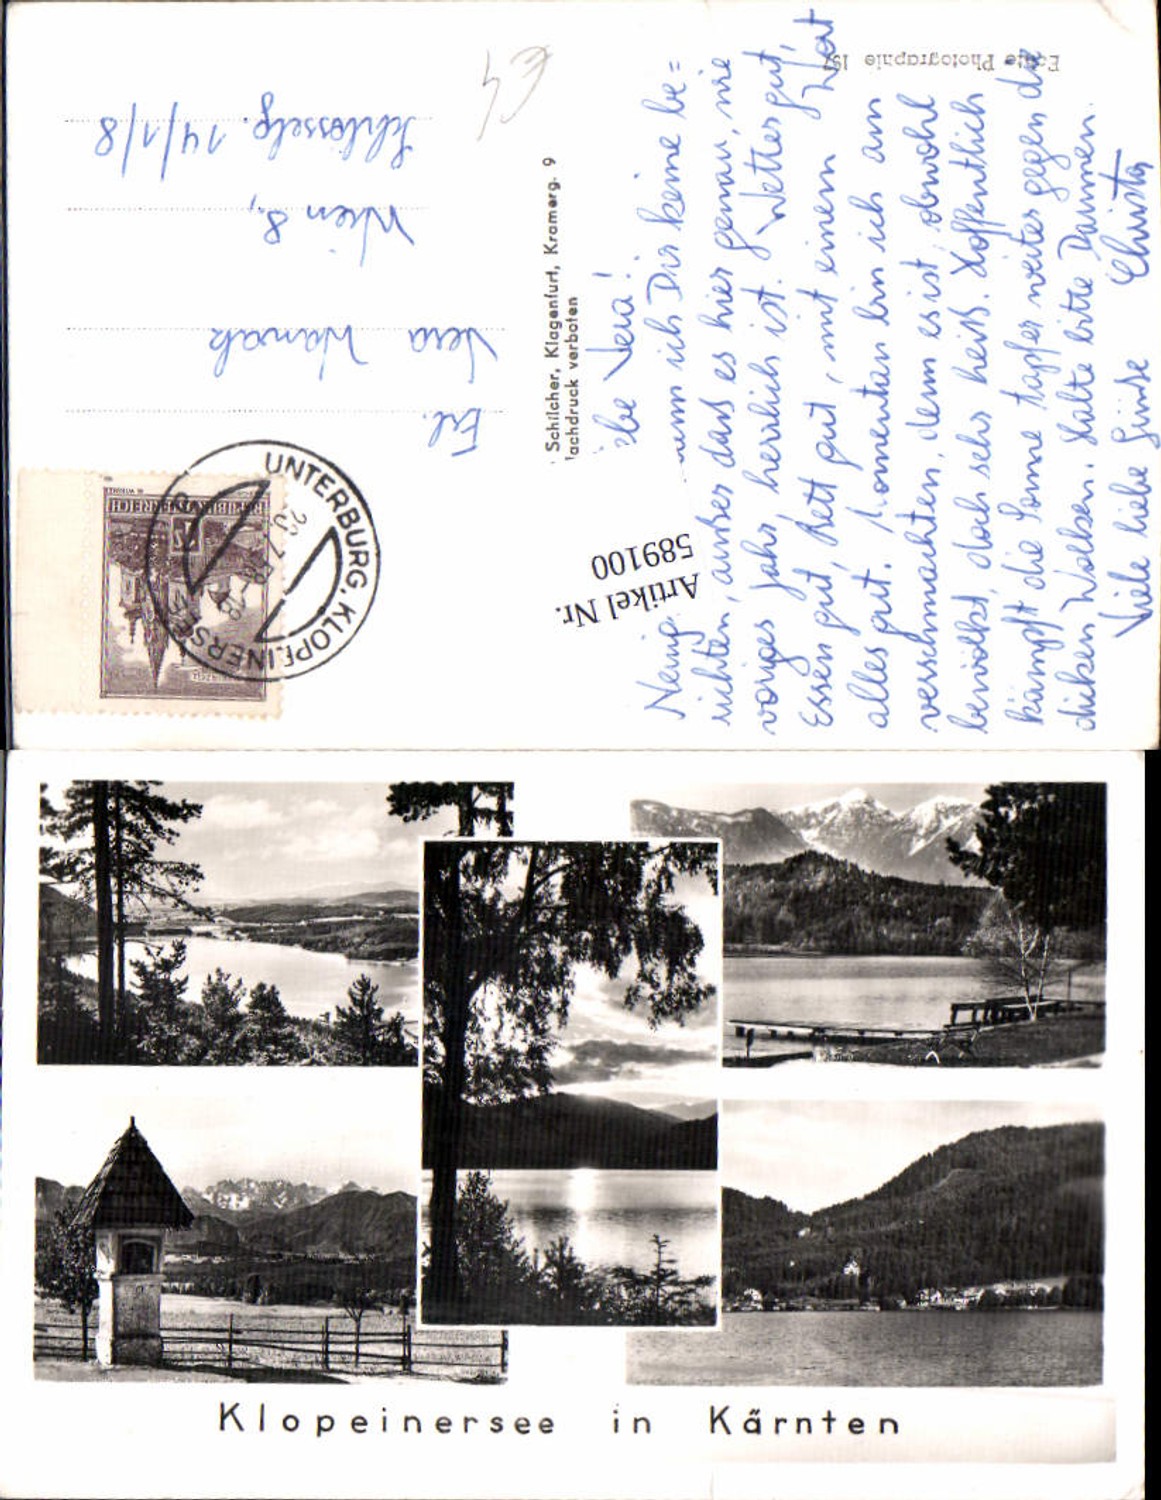 Echte Photographie 197
Frl.
Vera
Wien 8.,
Schlösselg. 14/1/8
€4
Schilcher, Klagenfurt, Kramerg. 9
achdruck verboten
UNTERBURG, KLOPEINERSEE
REPUBLIK ÖSTERREICH
Artikel Nr.
589100
be Vera!
ich Dir keine be=
richten, außer daß es hier genau, wie
voriges Jahr herrlich ist. Wetter gut,
Essen gut, Bett gut, mit einem Wort
alles gut. Momentan bin ich am
verschmachten, denn es ist, obwohl
bewölkt, doch sehr heiß. Hoffentlich
kämpft die Sonne tapfer weiter gegen die
dicken Wolken. Halte bitte Daumen.
Viele liebe Grüße Christa
Klopeinersee in Kärnten